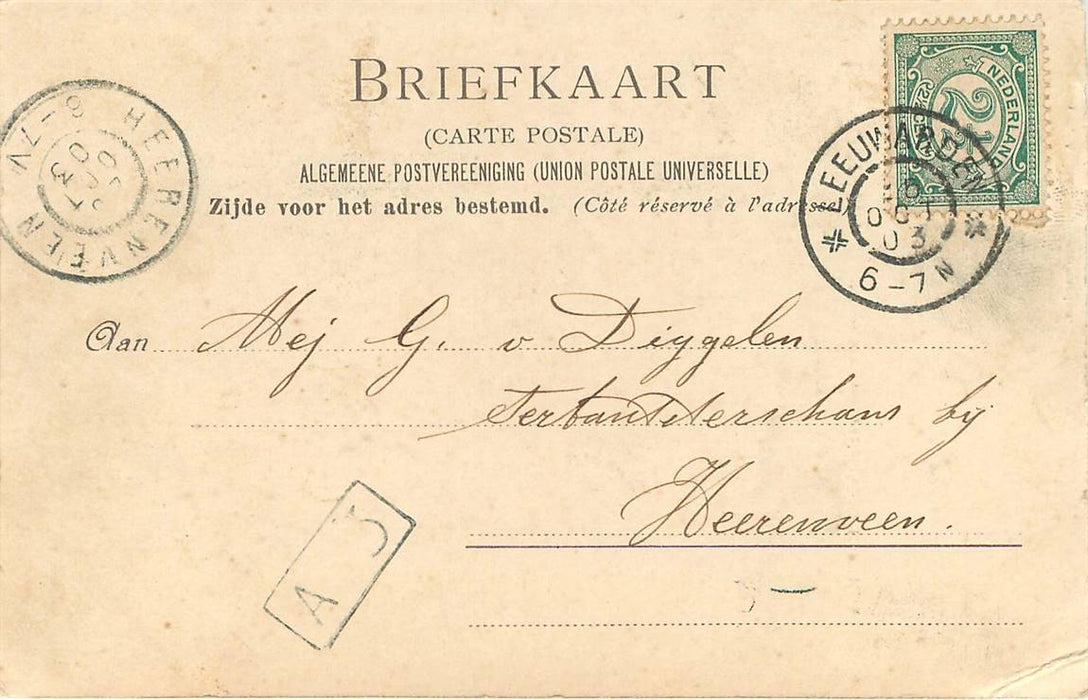 BRIEFKAART
(CARTE POSTALE)
ALGEMEENE POSTVEREENIGING (UNION POSTALE UNIVERSELLE)
Zijde voor het adres bestemd. (Côté réservé à l'adresse)
HEERENVEEN
8-7V
OCT
03
NEDERLAND
2½
LEEUWARDEN
OCT
03
6-7N
Aan Mej G. v Diggelen
Terbantsterschans by
Heerenveen.
A J